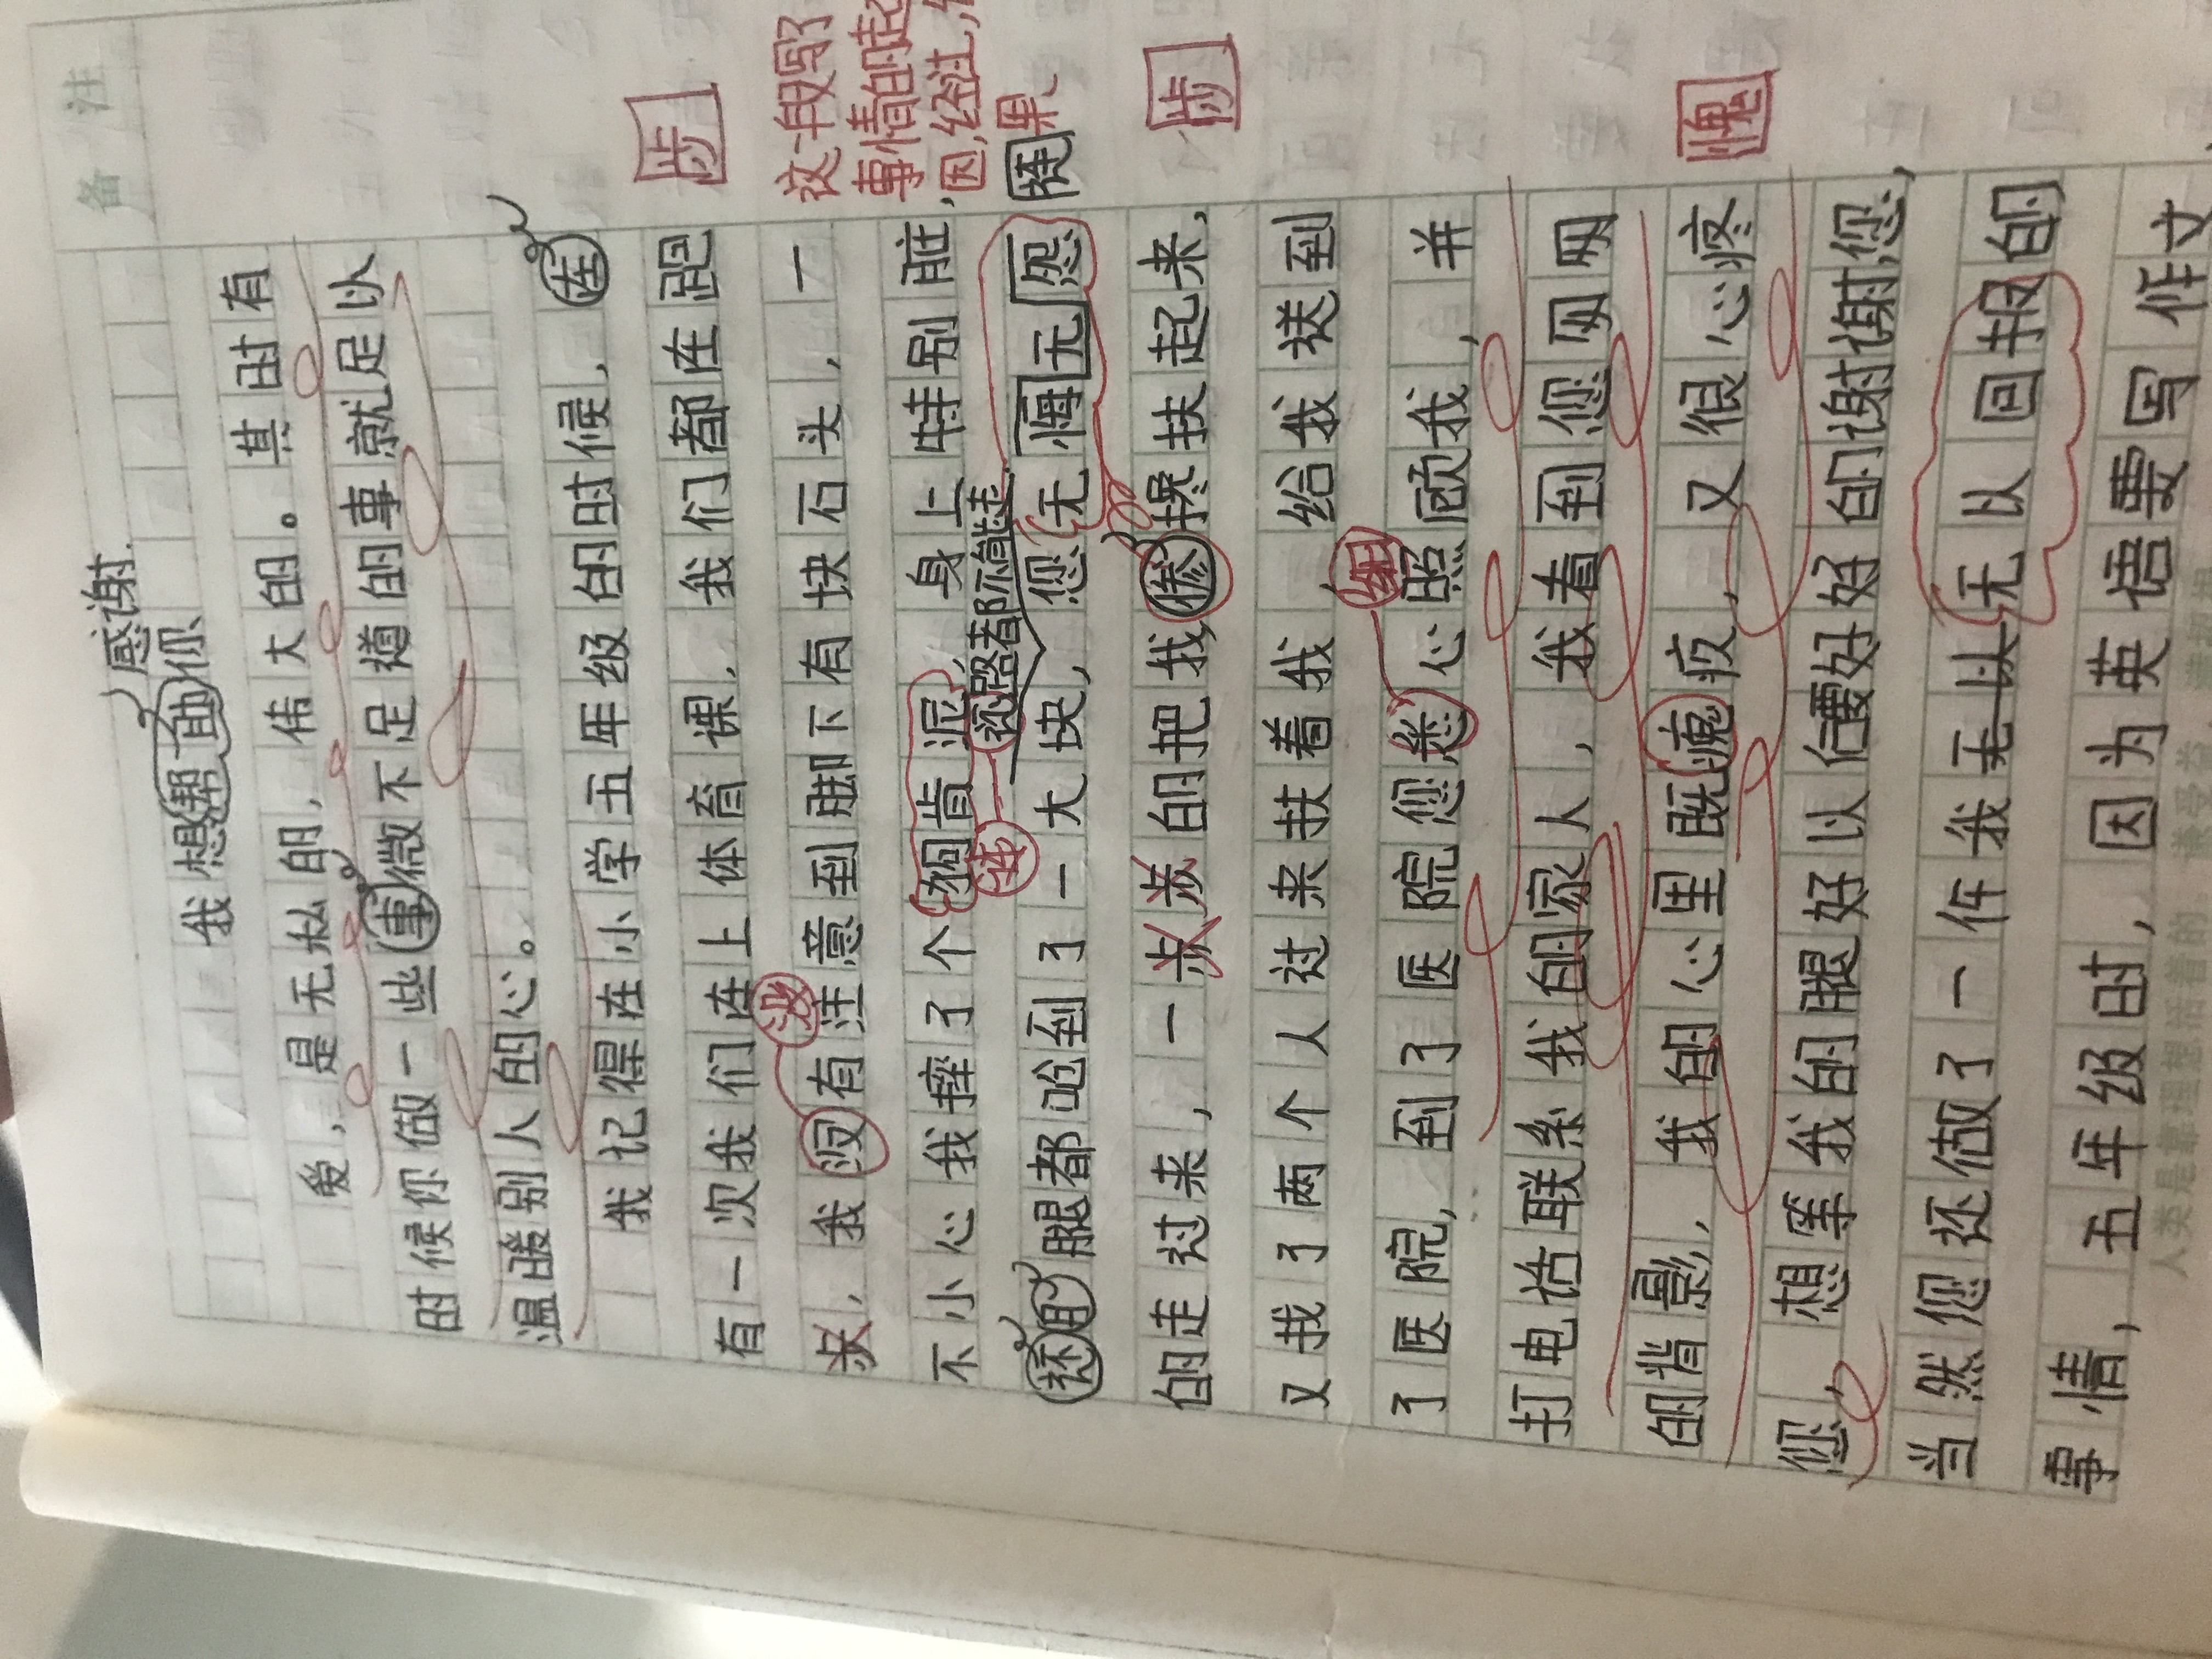 备注
感谢
我想帮助你
爱,是无私的,伟大的。其时有
时候你做一些事微不足道的事就足以
温暖别人的心。
我记得在小学五年级的时候,在
有一次我们在上体育课,我们都在跑
步,我没有注意到脚下有块石头,一
没
步
不小心我摔了个狗肯泥,身上特别脏
这段写了
事情的起
因,经过,
果、
还用腿都呛到了一大块,您无悔无愿
连路都不能走
连
的走过来,一步步的把我掺扶起来,
步
又找了两个人过来扶着我 给我送到
了医院,到了医院您悉心照顾我,并
细
打电话联系我的家人,我看到您匆匆
的背影,我的心里既愧疚,又很心疼
愧
您,想等我的腿好以便好好的谢谢您,
当然您还做了一件我无以无以回报的
事情,五年级时,因为英语要写作文